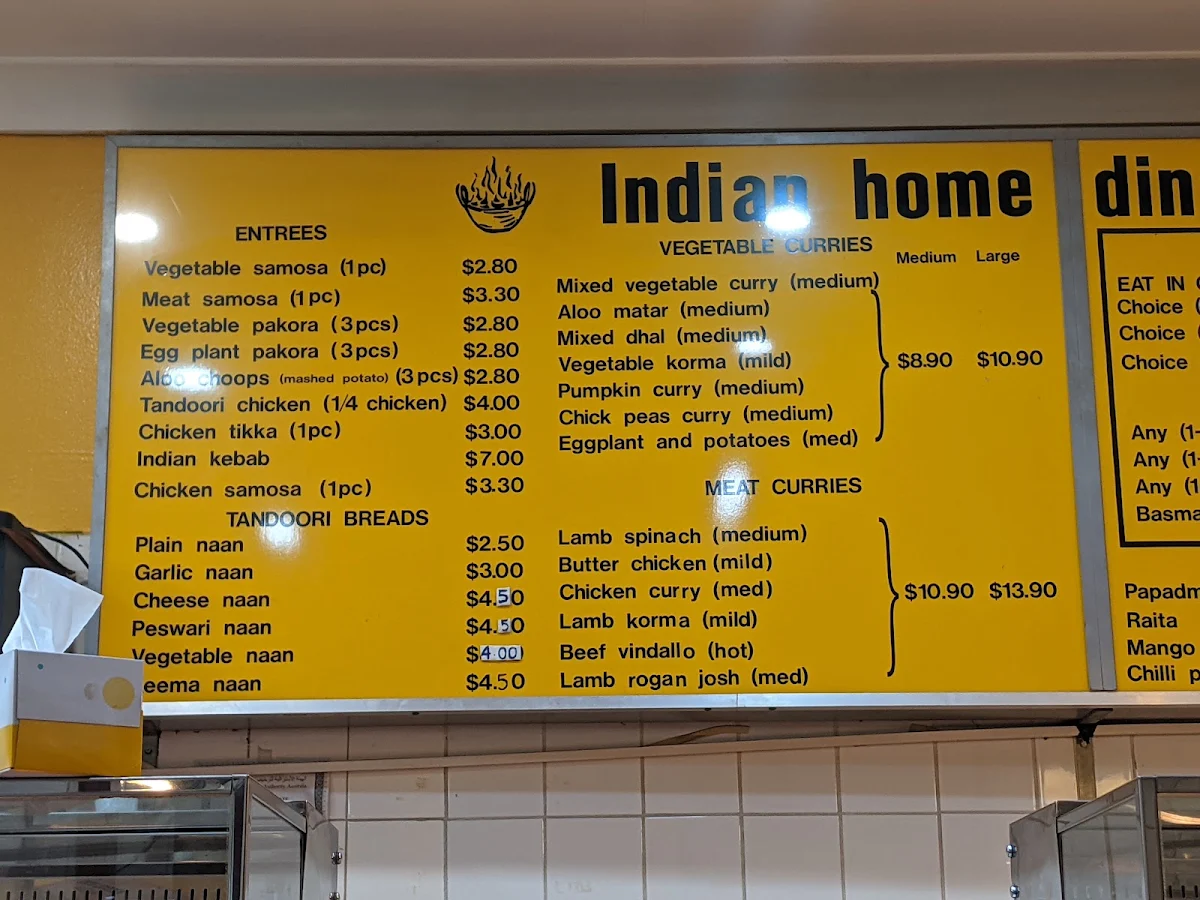 Indian home din
ENTREES
Vegetable samosa (1pc) $2.80
Meat samosa (1pc) $3.30
Vegetable pakora (3pcs) $2.80
Egg plant pakora (3pcs) $2.80
Aloo choops (mashed potato) (3pcs) $2.80
Tandoori chicken (1/4 chicken) $4.00
Chicken tikka (1pc) $3.00
Indian kebab $7.00
Chicken samosa (1pc) $3.30
TANDOORI BREADS
Plain naan $2.50
Garlic naan $3.00
Cheese naan $4.50
Peswari naan $4.50
Vegetable naan $4.00
eema naan $4.50
VEGETABLE CURRIES Medium Large
Mixed vegetable curry (medium)
Aloo matar (medium)
Mixed dhal (medium)
Vegetable korma (mild) $8.90 $10.90
Pumpkin curry (medium)
Chick peas curry (medium)
Eggplant and potatoes (med)
MEAT CURRIES
Lamb spinach (medium)
Butter chicken (mild)
Chicken curry (med) $10.90 $13.90
Lamb korma (mild)
Beef vindallo (hot)
Lamb rogan josh (med)
EAT IN
Choice
Choice
Choice
Any (1-
Any (1-
Any (1
Basma
Papadm
Raita
Mango
Chilli p